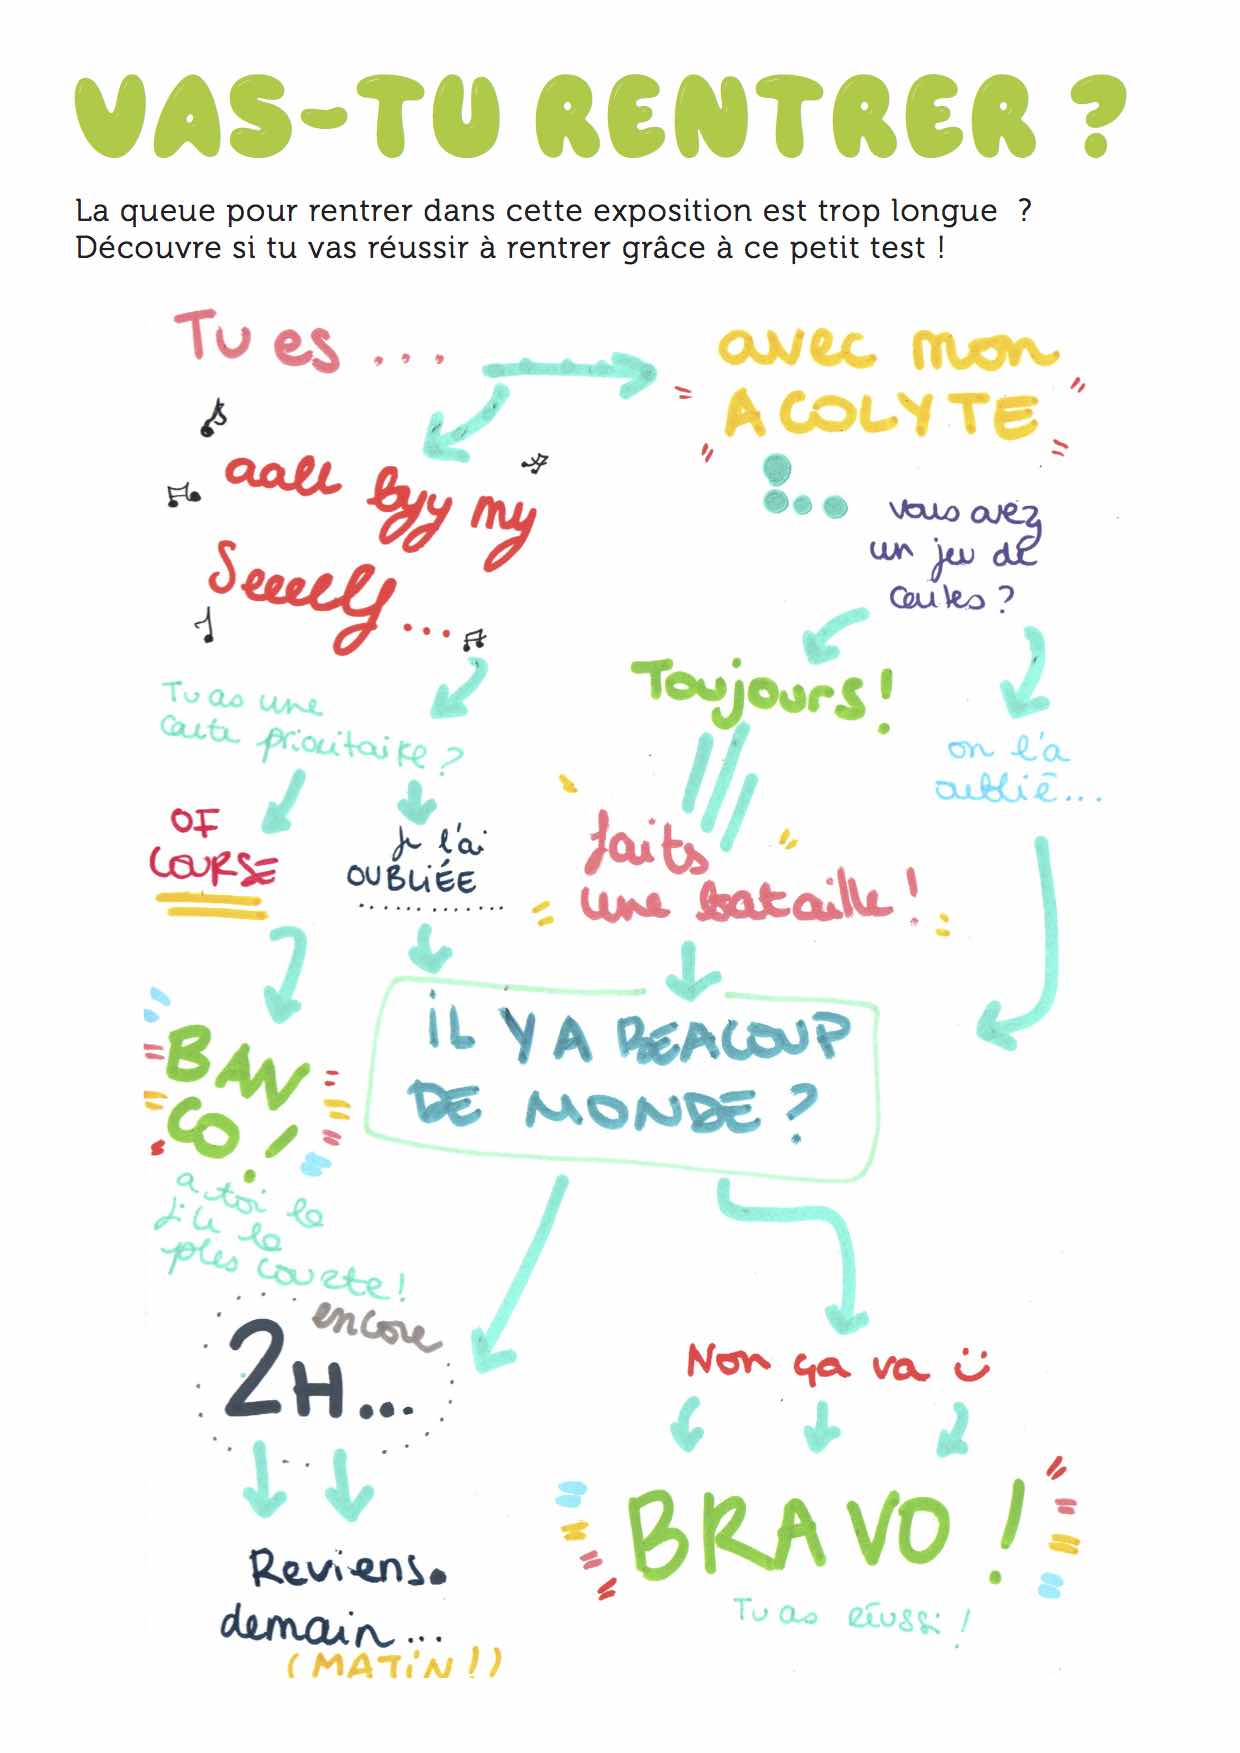 VAS-TU RENTRER ?
La queue pour rentrer dans cette exposition est trop longue ?
Découvre si tu vas réussir à rentrer grâce à ce petit test !
Tu es ...
avec mon
ACOLYTE
aall byy my
Seeeelf...
vous avez
un jeu de
cartes ?
Tu as une
carte prioritaire ?
Toujours !
on l'a
oublié...
OF
COURSE
Je l'ai
OUBLIÉE
............
faits
une bataille !
IL Y A BEACOUP
DE MONDE ?
BAN
CO !
a toi la
file la
plus courte !
encore
2H...
Non ça va :)
Reviens.
demain...
(MATIN !)
BRAVO !
Tu as réussi !